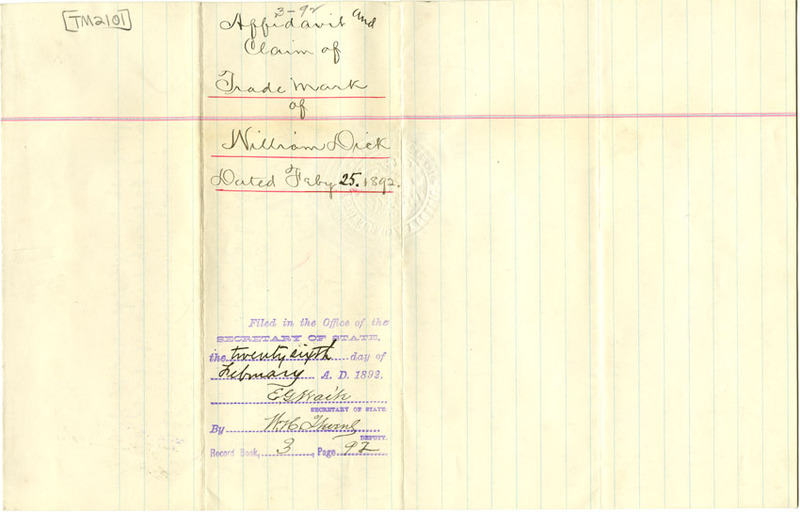 [TM2101]
3-92
Affidavit and
Claim of
Trade Mark
of
William Dick
Dated Feby 25. 1892.
Filed in the Office of the
SECRETARY OF STATE,
the twenty sixth day of
February A. D. 1892.
E G Waite
SECRETARY OF STATE
By W. H. Thorne
DEPUTY.
Record Book, 3, Page 92